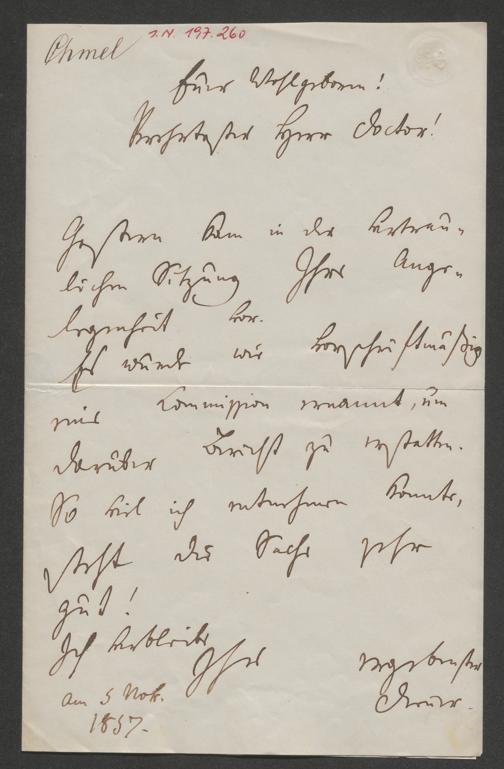 Chmel
I.N. 197.260
Euer Wohlgeboren!
Verehrtester Herr Doctor!
Gestern kam in der vertrau-
lichen Sitzung Ihre Ange-
legenheit vor.
Es wurde wie vorschriftmäßig
eine Commission ernannt, um
darüber Bericht zu erstatten.
So viel ich entnehmen konnte,
steht die Sache sehr
gut!
Ich verbleibe
Ihr ergebenster
Chmel.
am 5 Nov.
1857.